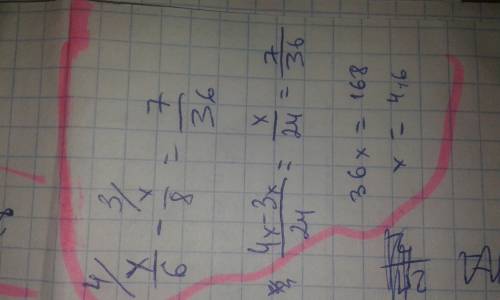 4/x/6 - 3/x/8 = 7/36
4x-3x/24 = x/24 = 7/36
36x = 168
x = 4,6